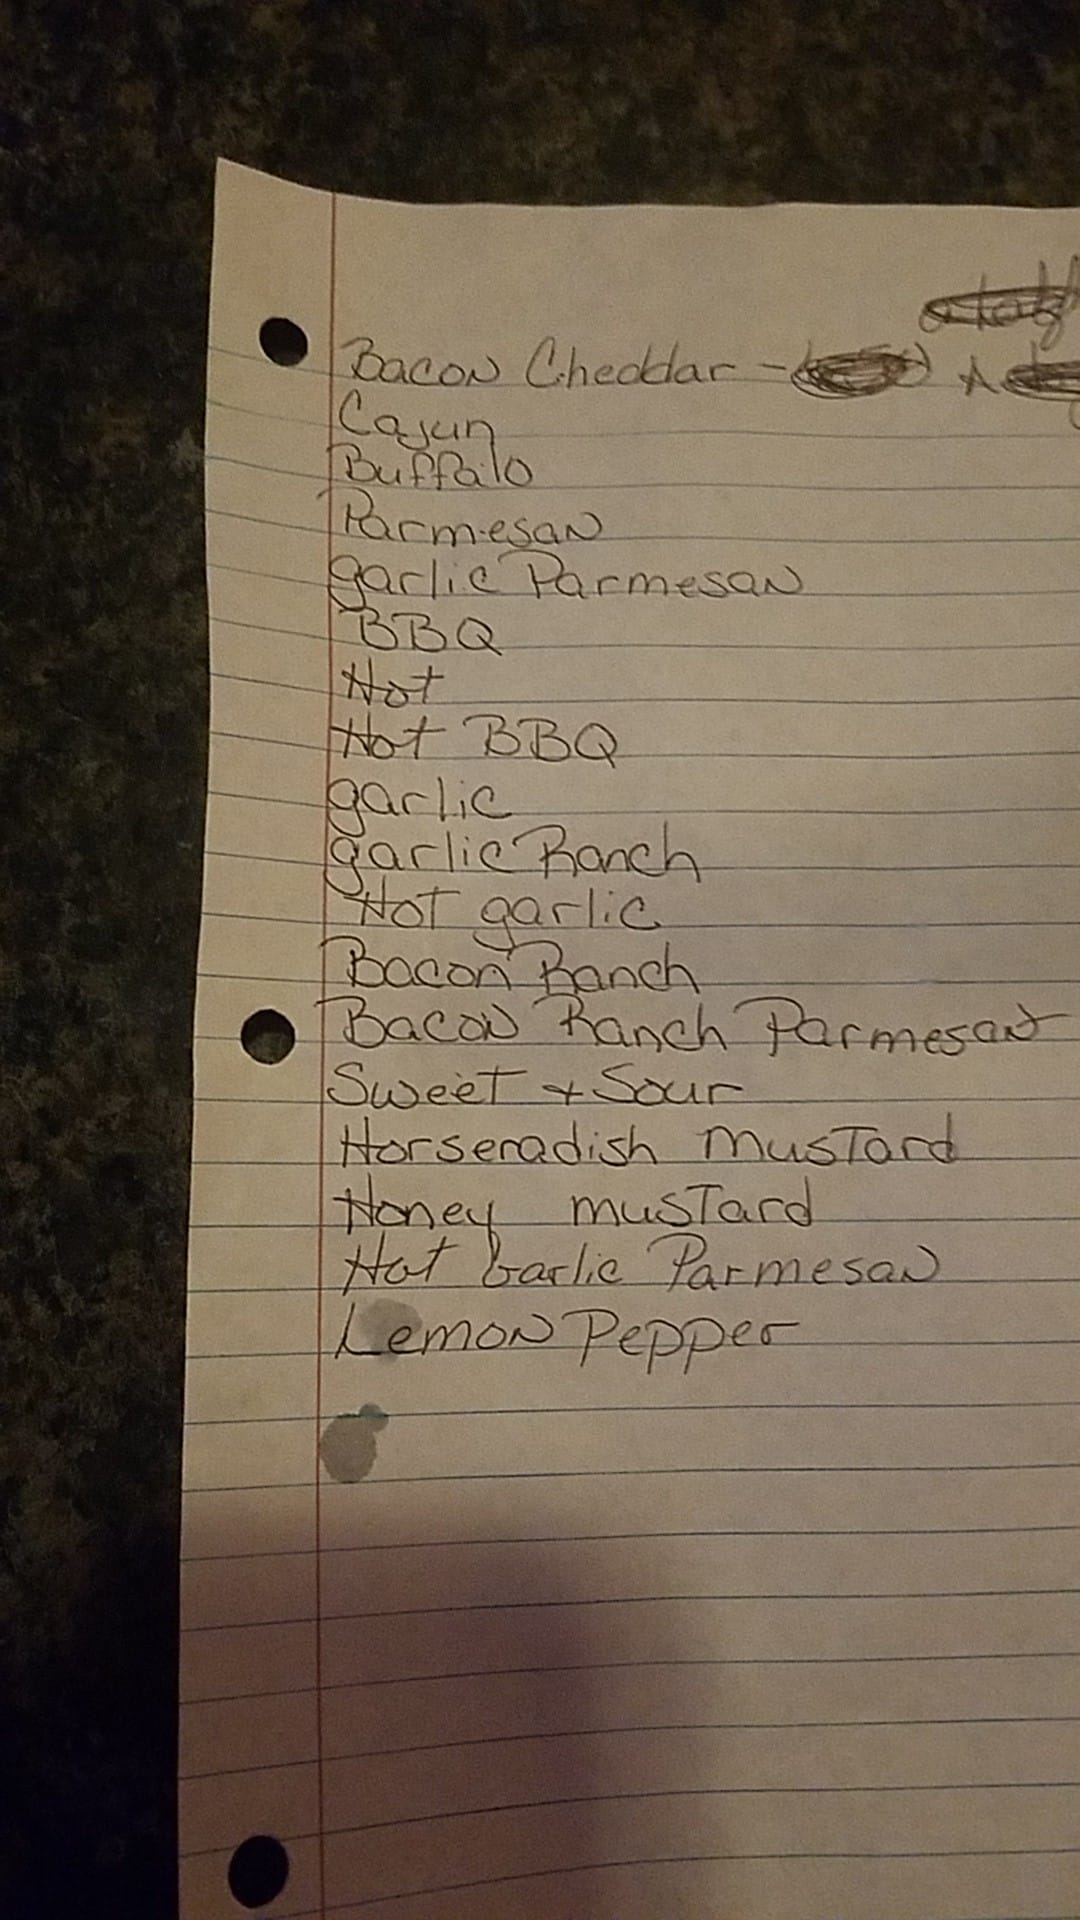 Bacon Cheddar - A
Cajun
Buffalo
Parmesan
garlic Parmesan
BBQ
Hot
Hot BBQ
garlic
garlic Ranch
Hot garlic
Bacon Ranch
Bacon Ranch Parmesan
Sweet + Sour
Horseradish Mustard
Honey mustard
Hot Garlic Parmesan
Lemon Pepper